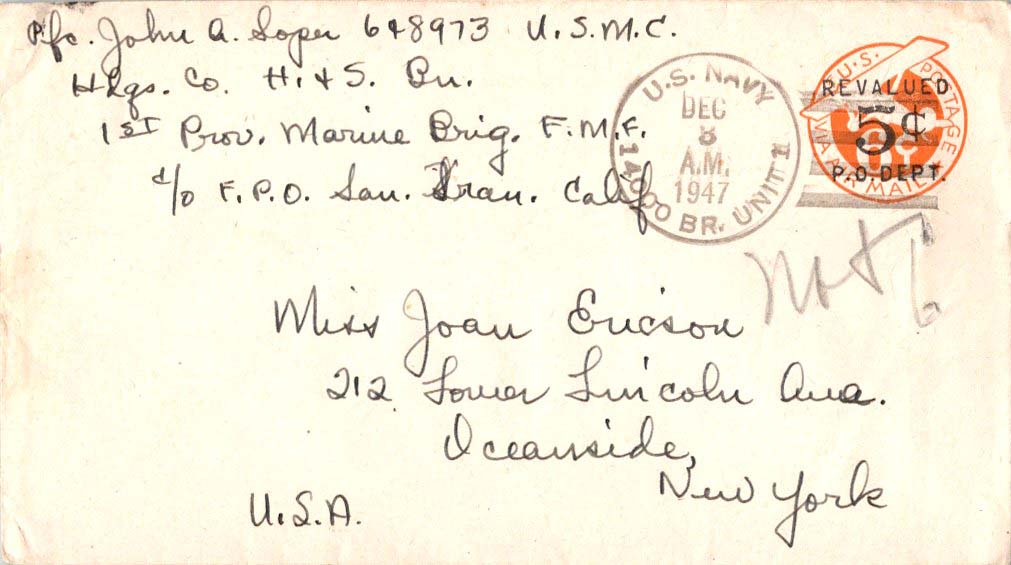 Pfc. John A. Soper 648973 U.S.M.C.
Hdqs. Co. H. & S. Bn.
1st Prov. Marine Brig. F.M.F.
c/o F.P.O. San. Fran. Calif
U.S. NAVY
DEC
8
A.M.
1947
14000 BR. UNIT 1
U.S. POSTAGE
REVALUED
5¢
6¢
P.O. DEPT.
VIA AIR MAIL
Miss Joan Ericson
212 Lower Lincoln Ave.
Oceanside,
New York
U.S.A.